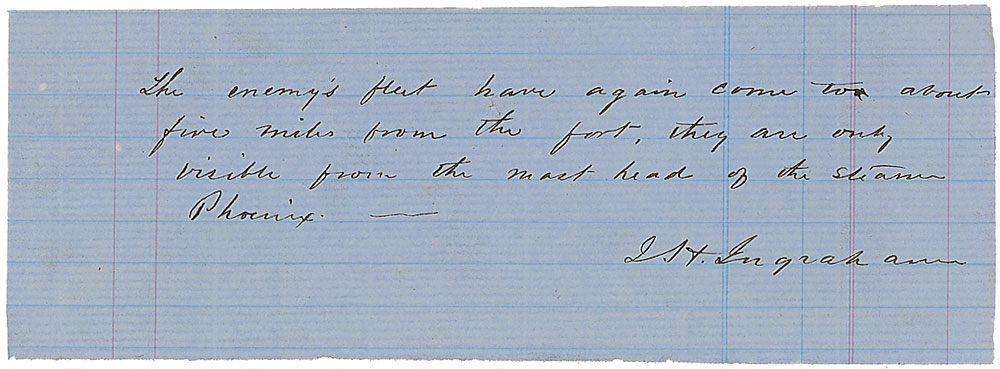 The enemy's fleet have again come too about
five miles from the fort, they are only
visible from the mast head of the steamer
Phoenix. —
J. H. Ingraham